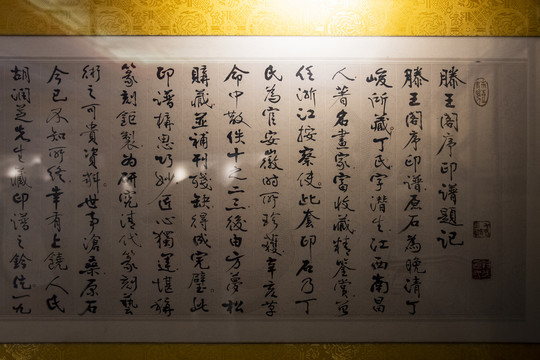 滕王阁序印谱题记
滕王阁序印谱原石为晚清丁
峻所藏丁氏字潜生江西南昌
人著名画家富收藏精鉴赏曾
任浙江按察使此套印石乃丁
氏为官安徽时所珍获辛亥革
命中散佚十之二三后由方梦松
购藏并补刊残缺得成完璧此
印谱构思巧妙匠心独运堪称
篆刻钜制为研究清代篆刻艺
术之可贵资料世事沧桑原石
今已不知所终幸有上饶人氏
胡润芝先生藏印谱之钤估一九